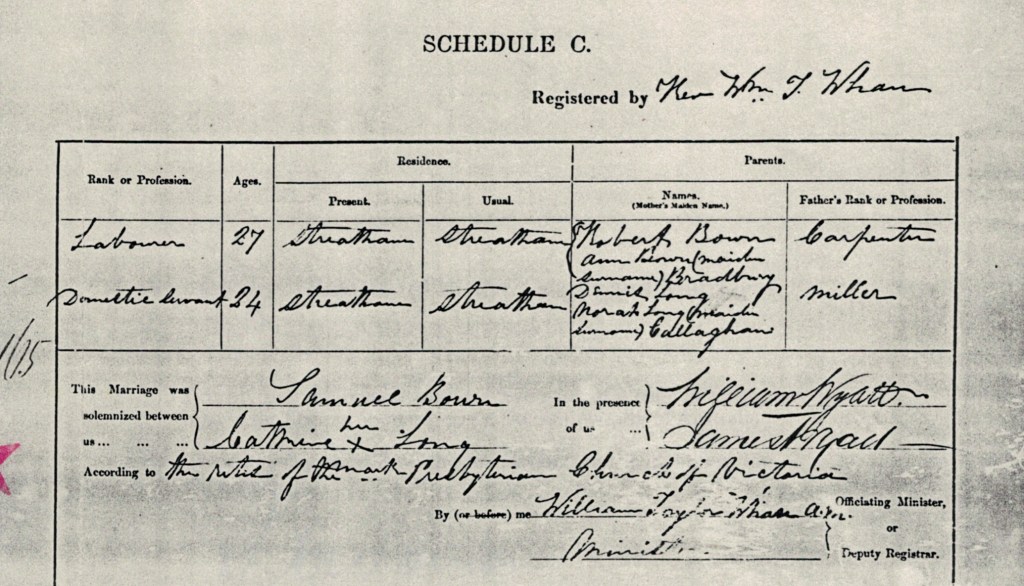 SCHEDULE C.
Registered by Rev Wm. T. Whan
Rank or Profession. Ages. Residence. Parents.
Present. Usual. Names. (Mother's Maiden Name.) Father's Rank or Profession.
Labourer 27 Streatham Streatham Robert Bown Carpenter
Ann Bown (maiden
surname) Bradbury
Domestic Servant 24 Streatham Streatham Denis Long Miller
Norah Long (maiden
surname) Callaghan
1/15
This Marriage was solemnized between us... ... ...
Samuel Bown
Cathrine her x Long
In the presence of us ...
William Wyatt
James
According to the rites of the Presbyterian Church of Victoria
By (or before) me William Taylor Whan A.M.
Minister
Officiating Minister,
or
Deputy Registrar.